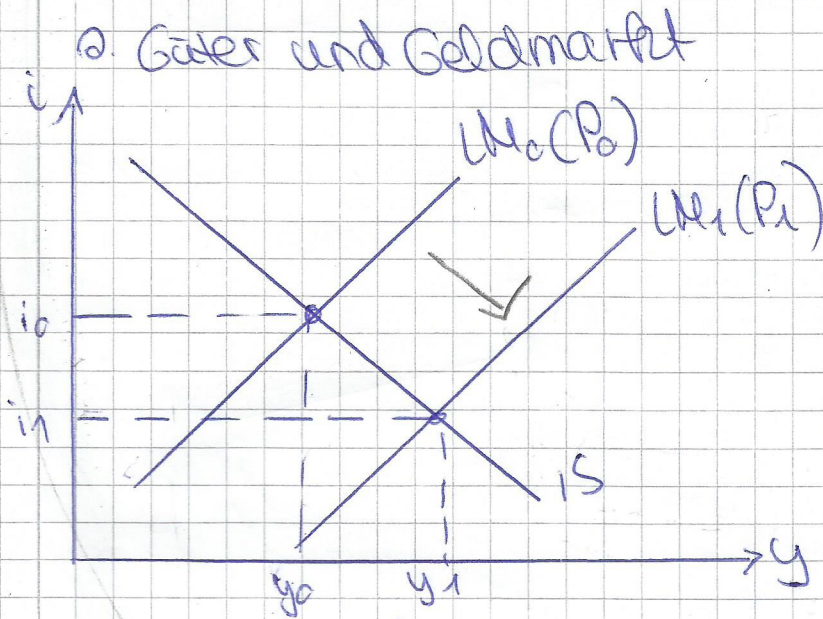 a. Güter und Geldmarkt
i
LM₀(P₀)
LM₁(P₁)
i₀
i₁
IS
y₀ y₁
y